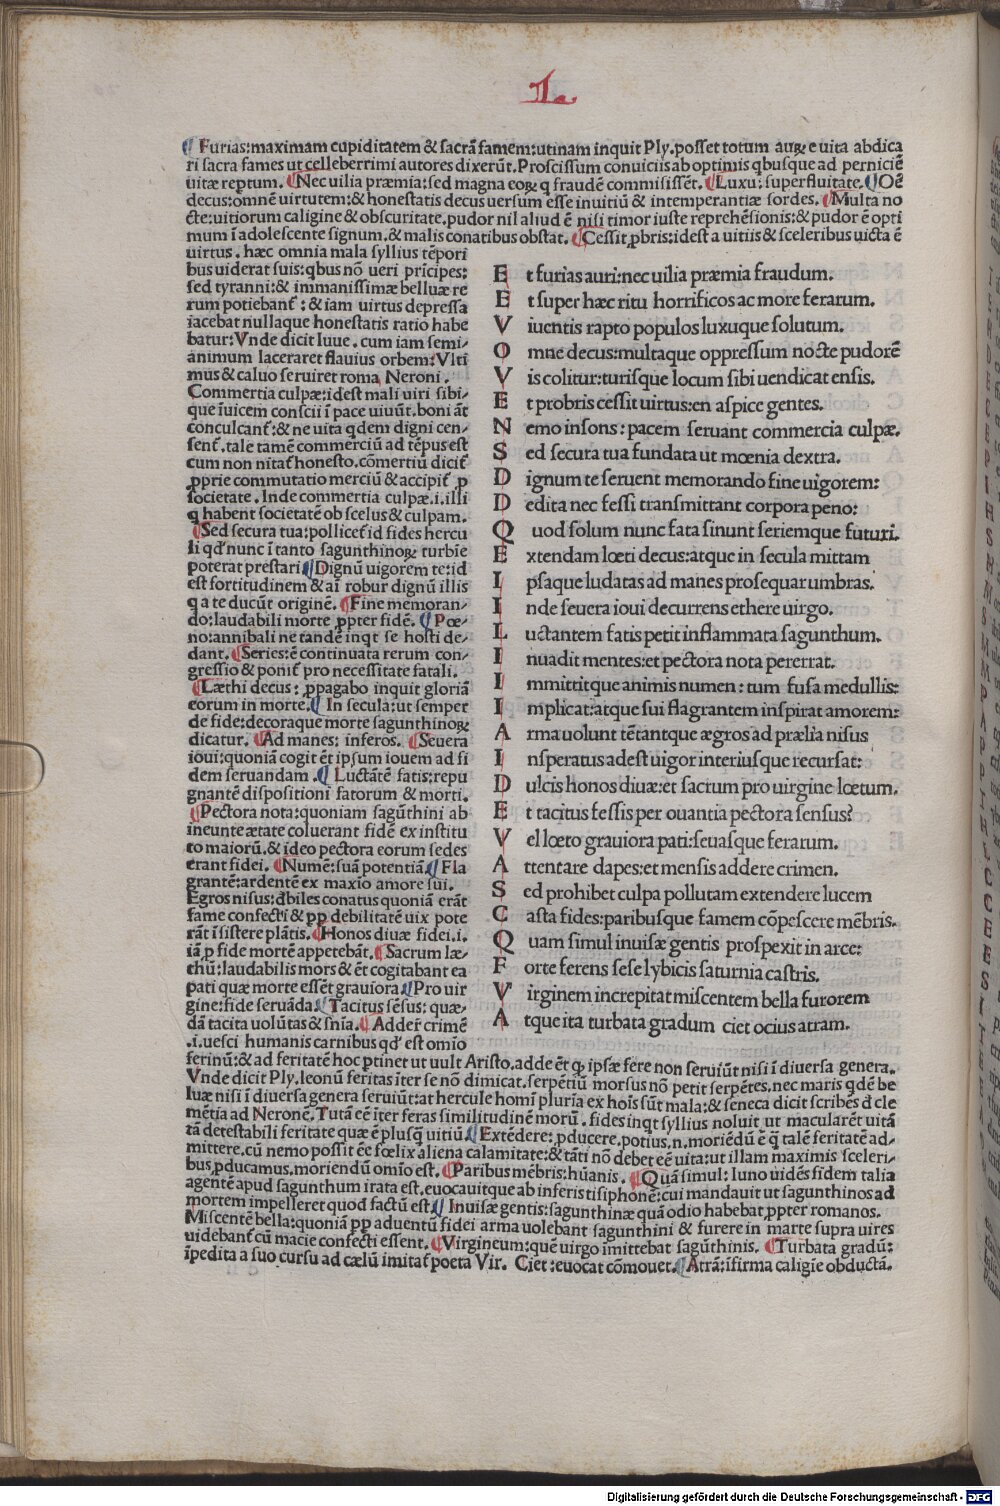 ¶ Furias:maximam cupiditatem & sacrã famem:utinam inquit Ply.posset totum auꝝ e uita abdica
ri sacra fames ut celleberrimi autores dixerũt.Proscissum conuiciis ab optimis qbusque ad perniciẽ
uitæ reptum. ¶Nec uilia præmia:sed magna eoꝝ q fraudẽ commisissẽt. ¶Luxu:superfluitate.¶Oẽ
decus:omnẽ uirtutem:& honestatis decus uersum esse inuitiũ & intemperantiæ sordes. ¶Multa no
cte:uitiorum caligine & obscuritate.pudor nil aliud ẽ nisi timor iuste reprehẽsionis:& pudor ẽ opti
mum ĩ adolescente signum.& malis conatibus obstat. ¶Cessit ꝓbris:idest a uitiis & sceleribus uicta ẽ
uirtus. hæc omnia mala syllius tẽpori
bus uiderat suis:qbus nõ ueri prĩcipes:
sed tyranni:& immanissimæ belluæ re
rum potiebant̃:& iam uirtus depressa
iacebat nullaque honestatis ratio habe
batur:Vnde dicit Iuue.cum iam semi-
animum laceraret flauius orbem:Vlti
mus & caluo seruiret roma Neroni.
Commertia culpæ:idest mali uiri sibi-
que ĩuicem conscii ĩ pace uiuũt.boni ãt
conculcant̃:& ne uita qdem digni cen-
sent̃.tale tamẽ commerciũ ad tẽpus est
cum non nitat̃ honesto.cõmertiũ dicit̃
ꝓprie commutatio merciũ & accipit̃ ꝓ
societate. Inde commertia culpæ.i.illi
q habent societatẽ ob scelus & culpam.
¶Sed secura tua:pollicet̃ id fides hercu
li qđ nunc ĩ tanto sagunthinoꝝ turbĩe
poterat prestari ¶Dignũ uigorem te:id
est fortitudinem & aĩ robur dignũ illis
q a te ducũt originẽ. ¶Fine memoran-
do:laudabili morte ꝓpter fidẽ. ¶Pœ-
no:annibali ne tandẽ inqt se hosti de-
dant. ¶Series:ẽ continuata rerum con-
gressio & ponit̃ pro necessitate fatali.
¶Læthi decus: ꝓpagabo inquit gloriã
eorum in morte.¶ In secula:ut semper
de fide:decoraque morte sagunthinoꝝ
dicatur. ¶Ad manes: inferos. ¶Seuera
ioui:quoniã cogit ẽt ipsum iouem ad fi
dem seruandam .¶ Luctãtẽ fatis:repu
gnantẽ dispositioni fatorum & morti.
¶Pectora nota:quoniam sagũthini ab
ineunte ætate coluerant fidẽ ex institu
to maiorũ.& ideo pectora eorum sedes
erant fidei. ¶Numẽ:suã potentiã.¶ Fla
grantẽ:ardentẽ ex maxĩo amore sui.
Egros nisus:đbiles conatus quoniã erãt
fame confecti & ꝓp debilitatẽ uix pote
rãt ĩsistere plãtis. ¶Honos diuæ fidei.i.
iã ꝓ fide mortẽ appetebãt.¶Sacrum læ-
thũ:laudabilis mors & ẽt cogitabant ea
pati quæ morte essẽt grauiora.¶Pro uir
gine:fide seruãda.¶Tacitus sẽsus: quæ-
dã tacita uolũtas & snĩa. ¶Adder̃ crimẽ
.i.uesci humanis carnibus qđ est omĩo
E t furias auri:nec uilia præmia fraudum.
E t super hæc ritu horrificos ac more ferarum.
V iuentis rapto populos luxuque solutum.
O mne decus:multaque oppressum nocte pudorẽ
V is colitur:turisque locum sibi uendicat ensis.
E t probris cessit uirtus:en aspice gentes.
N emo insons:pacem seruant commercia culpæ.
S ed secura tua fundata ut mœnia dextra.
D ignum te seruent memorando fine uigorem:
D edita nec fessi transmittant corpora peno:
Q uod solum nunc fata sinunt seriemque futuri.
E xtendam lœti decus:atque in secula mittam
I psaque ludatas ad manes prosequar umbras.
I nde seuera ioui decurrens ethere uirgo.
L uctantem fatis petit inflammata sagunthum.
I nuadit mentes:et pectora nota pererrat.
I mmittitque animis numen:tum fusa medullis:
I mplicat:atque sui flagrantem inspirat amorem:
A rma uolunt tẽtantque ægros ad prælia nisus
I nsperatus adest uigor interiusque recursat:
D ulcis honos diuæ:et sacrum pro uirgine lœtum.
E t tacitus fessis per ouantia pectora sensus?
V el lœto grauiora pati:seuasque ferarum.
A ttentare dapes:et mensis addere crimen.
S ed prohibet culpa pollutam extendere lucem
C asta fides:paribusque famem cõpescere mẽbris.
Q uam simul inuisæ gentis prospexit in arce:
F orte ferens sese lybicis saturnia castris.
V irginem increpitat miscentem bella furorem
A tque ita turbata gradum ciet ocius atram.
ferinũ:& ad feritatẽ hoc ꝑtinet ut uult Aristo.adde ẽt ꝙ ipsæ fere non seruiũt nisi ĩ diuersa genera.
Vnde dicit Ply.leonũ feritas ĩter se nõ dimicat.serpẽtiũ morsus nõ petit serpẽtes.nec maris qdẽ be
luæ nisi ĩ diuersa genera seruiũt:at hercule homĩ pluria ex hoĩs sũt mala:& seneca dicit scribẽs đ cle
mẽtia ad Neronẽ.Tutã eẽ ĩter feras similitudinẽ morũ.fides inqt syllius noluit ut macularẽt uitã
tã detestabili feritate quæ ẽ plusq̃ uitiũ.¶Extẽdere:ꝓducere.potius.n.moriẽdũ ẽ q̃ talẽ feritatẽ ad-
mittere.cũ nemo possit ẽe fœlix aliena calamitate:& tãti nõ debet eẽ uita:ut illam maximis sceleri-
bus ꝓducamus.moriendũ omĩo est. ¶Paribus mẽbris:hũanis. ¶Quã simul: Iuno uidẽs fidem talia
agentẽ apud sagunthum irata est.euocauitque ab inferis tisiphonẽ:cui mandauit ut sagunthinos ad
mortem impelleret quod factũ est.¶ Inuisæ gentis:sagunthinæ quã odio habebat ꝓpter romanos.
Miscentẽ bella:quoniã ꝓp aduentũ fidei arma uolebant sagunthini & furere in marte supra uires
uidebant̃ cũ macie confecti essent. ¶Virgineum:quẽ uirgo ĩmittebat sagũthinis. ¶Turbata gradũ:
ĩpedita a suo cursu ad cælũ imitat̃ poeta Vir. Ciet:euocat cõmouet.¶Atrã:ĩfirma caligĩe obductã.
Digitalisierung gefördert durch die Deutsche Forschungsgemeinschaft - DFG